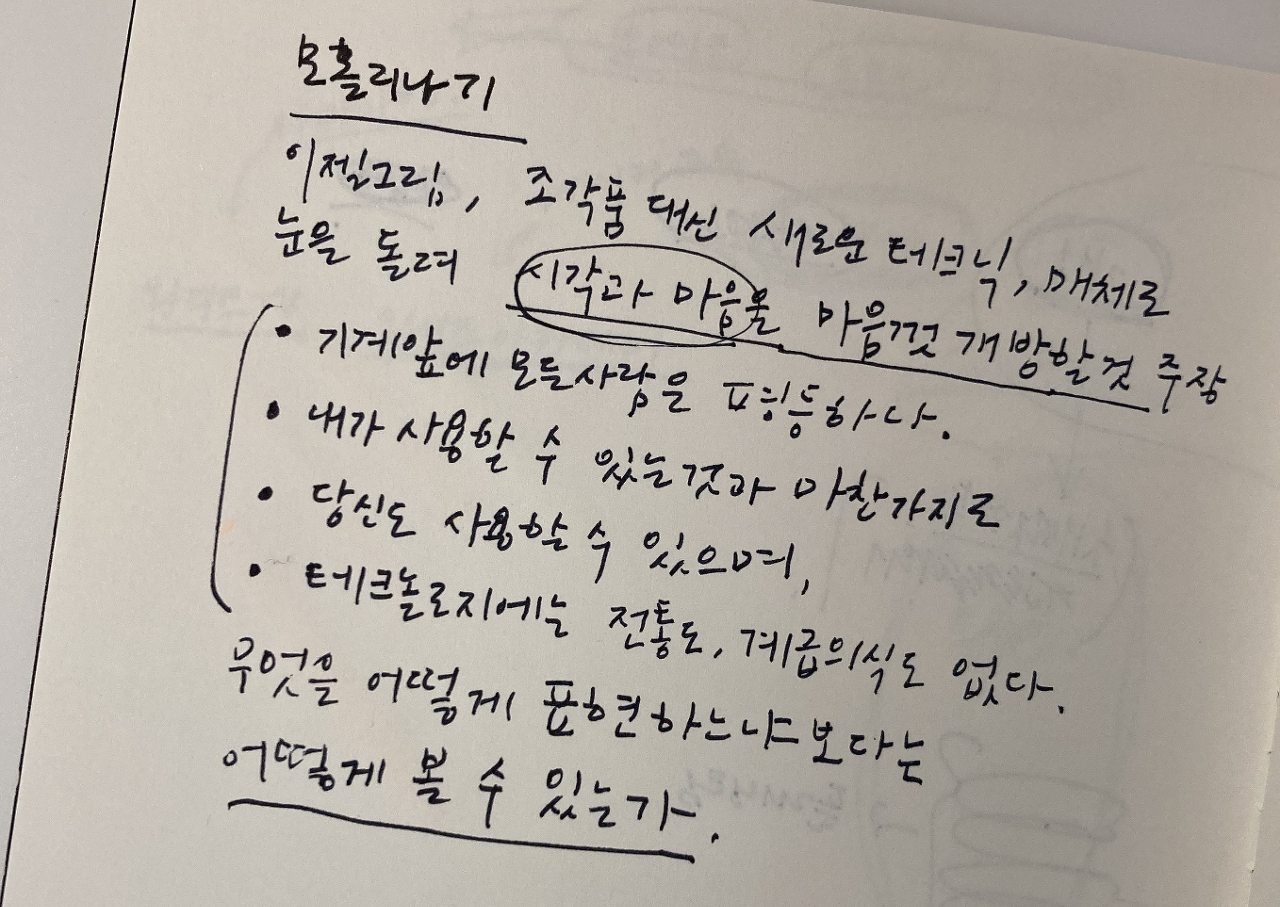 모홀리나기
이젤그림, 조각품 대신 새로운 테크닉, 매체로
눈을 돌려 시각과 마음을 마음껏 개방할것 주장
• 기계앞에 모든사람은 평등하다.
• 내가 사용할 수 있는것과 마찬가지로
• 당신도 사용할 수 있으며,
• 테크놀로지에는 전통도, 계급의식도 없다.
무엇을 어떻게 표현하느냐보다는
어떻게 볼 수 있는가.